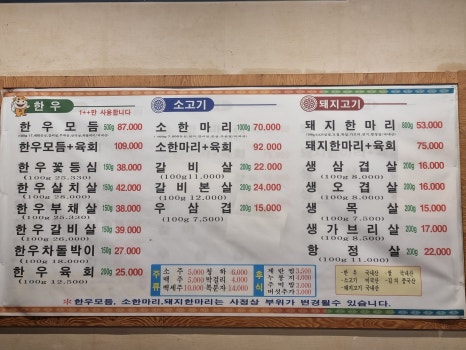 한우 1++만 사용합니다
한우모듬 500g 87.000
한우모듬+육회 109.000
한우꽃등심 150g 38.000
(100g 25.330)
한우살치살 150g 42.000
(100g 28.000)
한우부채살 150g 38.000
(100g 25.320)
한우갈비살 150g 39.000
(100g 26.000)
한우차돌박이 150g 27.000
(100g 18.000)
한우육회 200g 25.000
(100g 12.500)
소고기
소한마리 1000g 70.000
소한마리+육회 92.000
갈비살 200g 22.000
(100g11.000)
갈비본살 200g 24.000
(100g 12.000)
우삼겹 200g 15.000
(100g 7.500)
돼지고기
돼지한마리 800g 53.000
돼지한마리+육회 75.000
생삼겹살 200g 16.000
(100g 8.000)
생오겹살 200g 16.000
(100g 8.000)
생목살 200g 15.000
(100g 7.500)
생가브리살 200g 17.000
항정살 200g 22,000
(100g 11.000)
주류
소주 5.000 청하 6.000
맥주 5.000 막걸리 4.000
백세주 10.000 복분자 14.000
후식
계란찜 3.500
누룽지 3.000
주먹밥 3.000
버섯추가 3.000
-한우 국내산
-소고기 미국산 -김치 중국산
-돼지고기 국내산
※한우모듬, 소한마리,돼지한마리는 사정상 부위가 변경될수 있습니다.